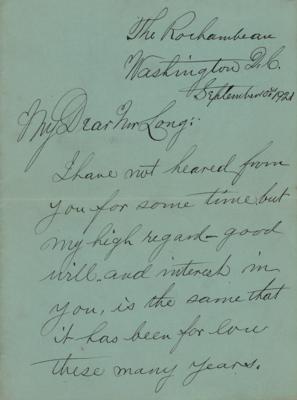 The Rochambeau
Washington D.C.
September
My Dear Mr Long:
I have not heared from
you for some time but
my high regard - good
will and interest in
you, is the same that
it has been for low
these many years.